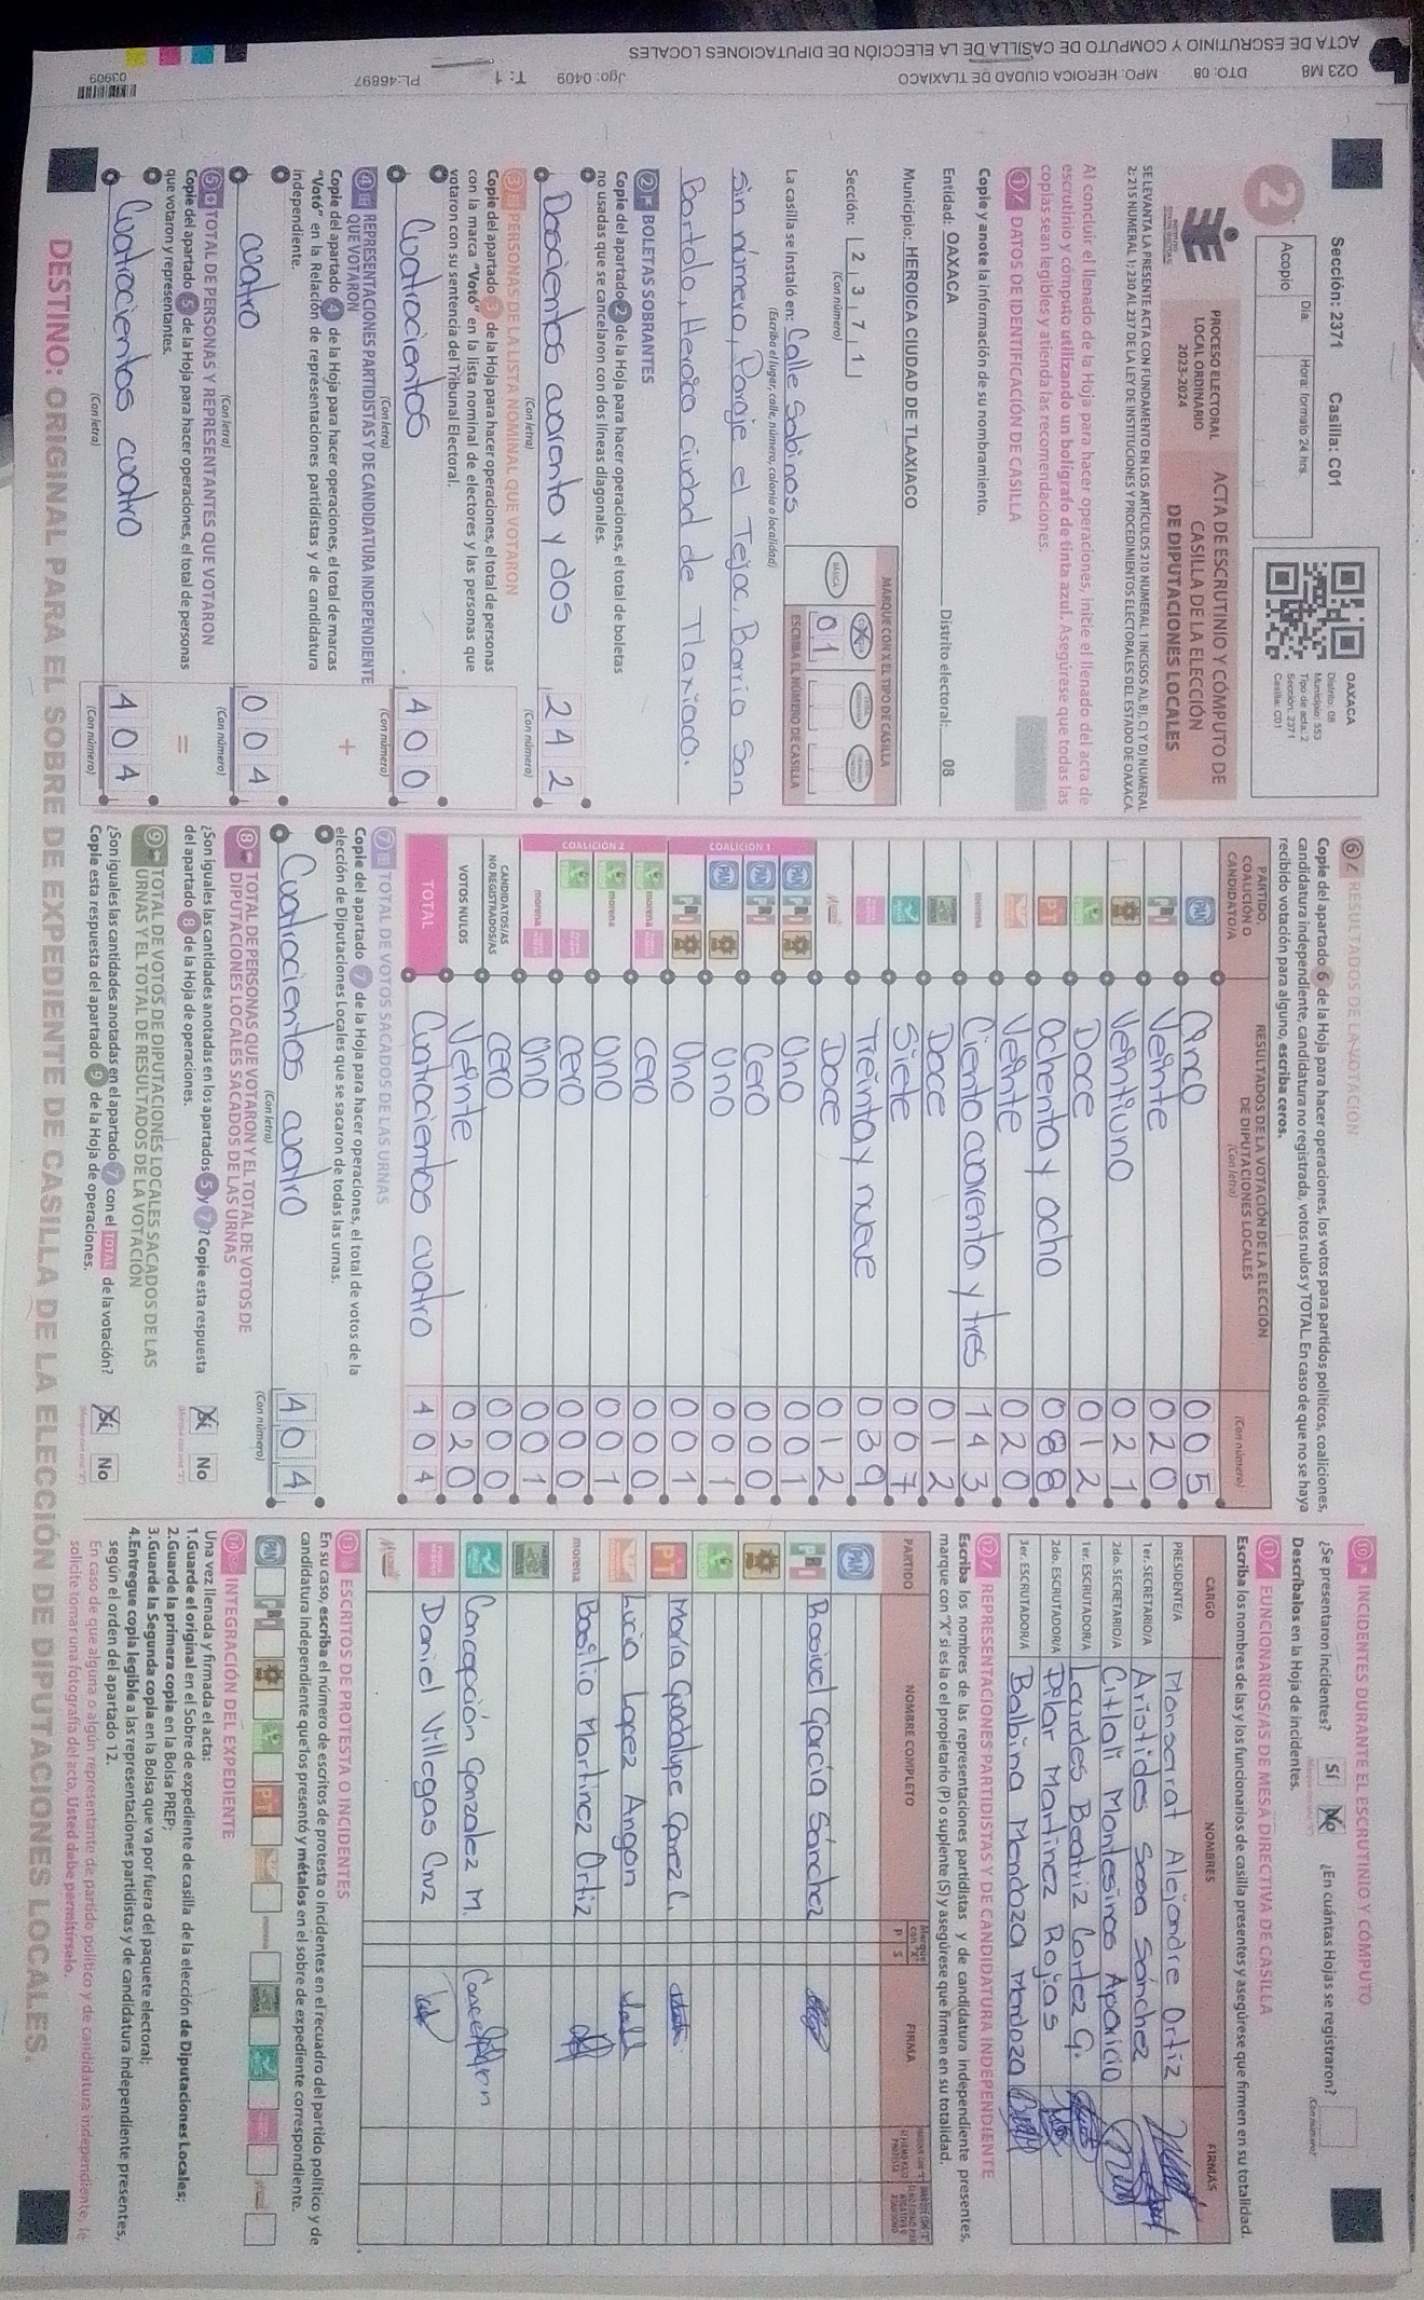 023 M8 DTO: 08 MPO: HEROICA CIUDAD DE TLAXIACO Jgo: 0409 T: 1 PL-46897 03909
ACTA DE ESCRUTINIO Y COMPUTO DE CASILLA DE LA ELECCIÓN DE DIPUTACIONES LOCALES
Sección: 2371 Casilla: C01
2
Acopio
Día:
Hora: formato 24 hrs.
OAXACA
Distrito: 08
Municipio: 553
Tipo de acta: 2
Sección: 2371
Casilla: C01
PROCESO ELECTORAL
LOCAL ORDINARIO
2023-2024
ACTA DE ESCRUTINIO Y CÓMPUTO DE
CASILLA DE LA ELECCIÓN
DE DIPUTACIONES LOCALES
SE LEVANTA LA PRESENTE ACTA CON FUNDAMENTO EN LOS ARTÍCULOS 210 NUMERAL 1 INCISOS A), B), C) Y D) NUMERAL
2; 215 NUMERAL 1; 230 AL 237 DE LA LEY DE INSTITUCIONES Y PROCEDIMIENTOS ELECTORALES DEL ESTADO DE OAXACA.
Al concluir el llenado de la Hoja para hacer operaciones, inicie el llenado del acta de
escrutinio y cómputo utilizando un bolígrafo de tinta azul. Asegúrese que todas las
copias sean legibles y atienda las recomendaciones.
1 DATOS DE IDENTIFICACIÓN DE CASILLA
Copie y anote la información de su nombramiento.
Entidad: OAXACA Distrito electoral: 08
Municipio: HEROICA CIUDAD DE TLAXIACO
Sección: 2 3 7 1
(Con número)
MARQUE CON X EL TIPO DE CASILLA
BÁSICA
0 1
ESCRIBA EL NÚMERO DE CASILLA
La casilla se instaló en: Calle Sabinos
(Escriba el lugar, calle, número, colonia o localidad)
sin número, Paraje el Tejoc, Barrio San
Bartolo, Heroica ciudad de Tlaxiaco.
2 BOLETAS SOBRANTES
Copie del apartado 2 de la Hoja para hacer operaciones, el total de boletas
no usadas que se cancelaron con dos líneas diagonales.
Doscientos cuarenta y dos 2 4 2
(Con letra) (Con número)
3 PERSONAS DE LA LISTA NOMINAL QUE VOTARON
Copie del apartado 3 de la Hoja para hacer operaciones, el total de personas
con la marca "Votó" en la lista nominal de electores y las personas que
votaron con su sentencia del Tribunal Electoral.
Cuatrocientos 4 0 0
(Con letra) (Con número)
4 REPRESENTACIONES PARTIDISTAS Y DE CANDIDATURA INDEPENDIENTE
QUE VOTARON
Copie del apartado 4 de la Hoja para hacer operaciones, el total de marcas
"Votó" en la Relación de representaciones partidistas y de candidatura
independiente.
+
cuatro 0 0 4
(Con letra) (Con número)
5 TOTAL DE PERSONAS Y REPRESENTANTES QUE VOTARON
Copie del apartado 5 de la Hoja para hacer operaciones, el total de personas
que votaron y representantes.
=
Cuatrocientos cuatro 4 0 4
(Con letra) (Con número)
6 RESULTADOS DE LA VOTACIÓN
Copie del apartado 6 de la Hoja para hacer operaciones, los votos para partidos políticos, coaliciones,
candidatura independiente, candidatura no registrada, votos nulos y TOTAL. En caso de que no se haya
recibido votación para alguno, escriba ceros.
PARTIDO,
COALICIÓN O
CANDIDATO/A
RESULTADOS DE LA VOTACIÓN DE LA ELECCIÓN
DE DIPUTACIONES LOCALES
(Con letra)
(Con número)
PAN Cinco 0 0 5
PRI Veinte 0 2 0
PRD Veintiuno 0 2 1
Doce 0 1 2
PT Ochenta y ocho 0 8 8
Veinte 0 2 0
morena Ciento cuarenta y tres 1 4 3
Doce 0 1 2
Siete 0 0 7
Treinta y nueve 0 3 9
Doce 0 1 2
COALICIÓN 1
PAN PRI PRD Uno 0 0 1
PAN PRI Cero 0 0 0
PAN PRD Uno 0 0 1
PRI PRD Uno 0 0 1
COALICIÓN 2
morena cero 0 0 0
morena uno 0 0 1
cero 0 0 0
morena uno 0 0 1
CANDIDATOS/AS
NO REGISTRADOS/AS cero 0 0 0
VOTOS NULOS Veinte 0 2 0
TOTAL Cuatrocientos cuatro 4 0 4
7 TOTAL DE VOTOS SACADOS DE LAS URNAS
Copie del apartado 7 de la Hoja para hacer operaciones, el total de votos de la
elección de Diputaciones Locales que se sacaron de todas las urnas.
Cuatrocientos cuatro 4 0 4
(Con letra) (Con número)
8 TOTAL DE PERSONAS QUE VOTARON Y EL TOTAL DE VOTOS DE
DIPUTACIONES LOCALES SACADOS DE LAS URNAS
¿Son iguales las cantidades anotadas en los apartados 5 y 7? Copie esta respuesta
del apartado 8 de la Hoja de operaciones.
Sí No
9 TOTAL DE VOTOS DE DIPUTACIONES LOCALES SACADOS DE LAS
URNAS Y EL TOTAL DE RESULTADOS DE LA VOTACIÓN
¿Son iguales las cantidades anotadas en el apartado 7 con el TOTAL de la votación?
Copie esta respuesta del apartado 9 de la Hoja de operaciones.
Sí No
10 INCIDENTES DURANTE EL ESCRUTINIO Y CÓMPUTO
¿Se presentaron incidentes? Sí No ¿En cuántas Hojas se registraron?
(Con número)
Descríbalos en la Hoja de incidentes.
11 FUNCIONARIOS/AS DE MESA DIRECTIVA DE CASILLA
Escriba los nombres de las y los funcionarios de casilla presentes y asegúrese que firmen en su totalidad.
CARGO NOMBRES FIRMAS
PRESIDENTE/A Monserrat Alejandre Ortiz
1er. SECRETARIO/A Aristides Sosa Sánchez
2do. SECRETARIO/A Citlali Montesinos Aparicio
1er. ESCRUTADOR/A Lourdes Beatriz Cortez G.
2do. ESCRUTADOR/A Pilar Martinez Rojas
3er. ESCRUTADOR/A Balbina Mendoza Mendoza
12 REPRESENTACIONES PARTIDISTAS Y DE CANDIDATURA INDEPENDIENTE
Escriba los nombres de las representaciones partidistas y de candidatura independiente presentes,
marque con "X" si es la o el propietario (P) o suplente (S) y asegúrese que firmen en su totalidad.
PARTIDO NOMBRE COMPLETO Marque con "X" P S FIRMA
PAN
PRI Rosivel García Sánchez
PRD
PT María Guadalupe Gomez C.
Lucio Lopez Angon
morena Basilio Martinez Ortiz
Concepción Gonzalez M.
Daniel Villegas Cruz
13 ESCRITOS DE PROTESTA O INCIDENTES
En su caso, escriba el número de escritos de protesta o incidentes en el recuadro del partido político y de
candidatura independiente que los presentó y métalos en el sobre de expediente correspondiente.
PAN PRI PRD PT morena
14 INTEGRACIÓN DEL EXPEDIENTE
Una vez llenada y firmada el acta:
1.Guarde el original en el Sobre de expediente de casilla de la elección de Diputaciones Locales;
2.Guarde la primera copia en la Bolsa PREP;
3.Guarde la Segunda copia en la Bolsa que va por fuera del paquete electoral;
4.Entregue copia legible a las representaciones partidistas y de candidatura independiente presentes,
según el orden del apartado 12.
En caso de que alguna o algún representante de partido político y de candidatura independiente, le
solicite tomar una fotografía del acta, Usted debe permitírselo.
DESTINO: ORIGINAL PARA EL SOBRE DE EXPEDIENTE DE CASILLA DE LA ELECCIÓN DE DIPUTACIONES LOCALES.